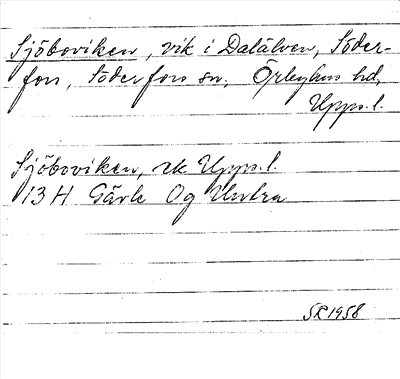 Sjöboviken, vik i Dalälven, Söder-
fors, Söderfors sn, Örbyhus hd,
Upps. l.
Sjöboviken, vk Upps. l.
13 H Gävle Og Untra
SR 1958